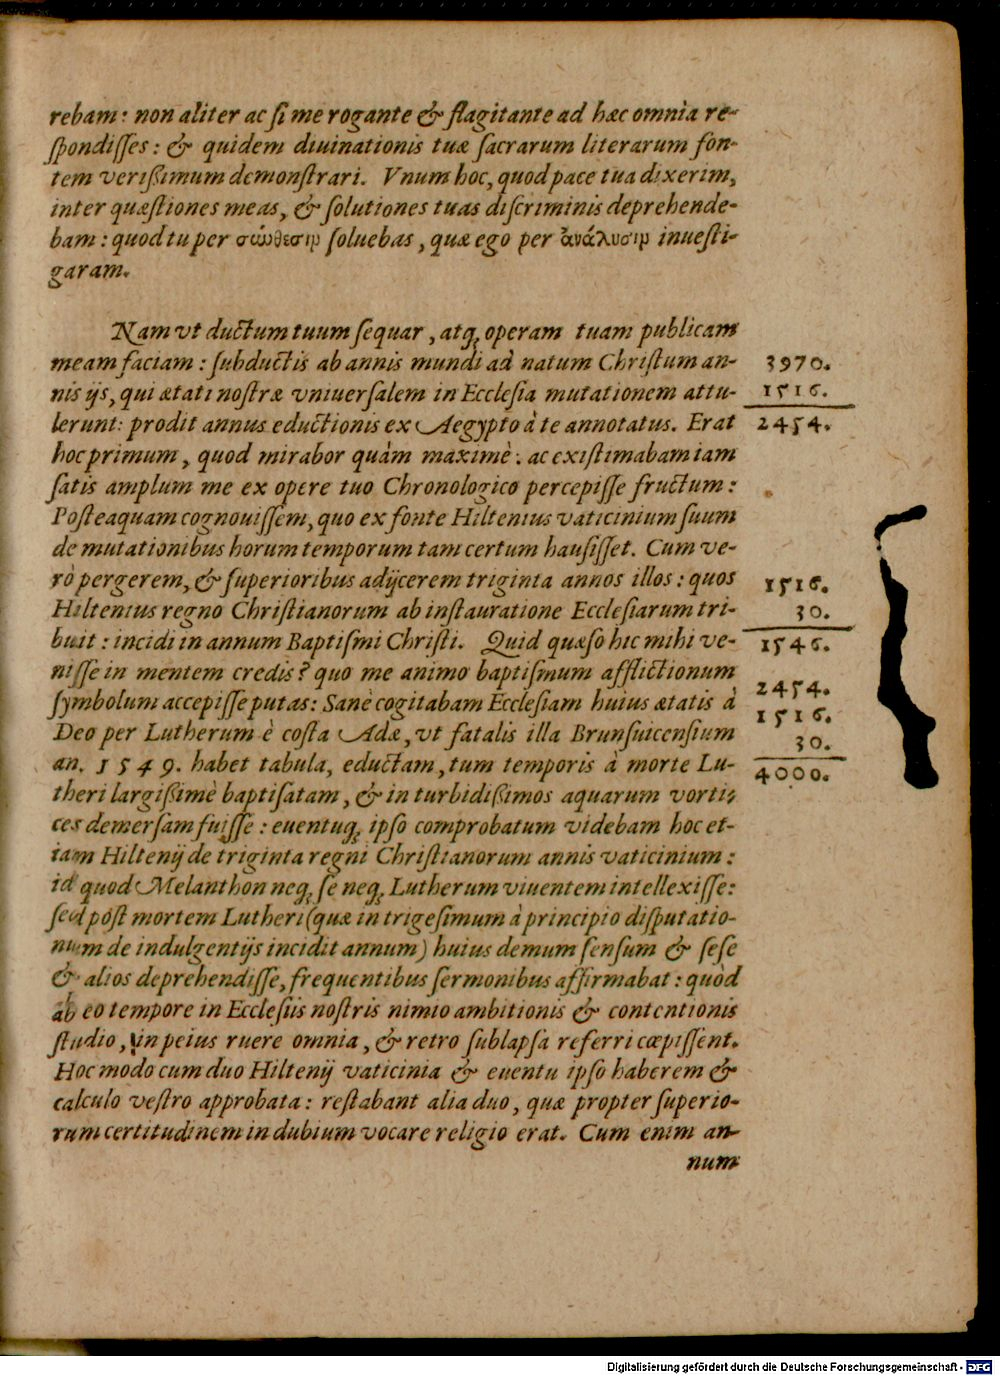 rebam: non aliter ac ſi me rogante & flagitante ad hæc omnia re-
ſpondiſſes: & quidem diuinationis tuæ ſacrarum literarum fon-
tem verißimum demonſtrari. Vnum hoc, quod pace tua dixerim,
inter quæſtiones meas, & ſolutiones tuas diſcriminis deprehende-
bam: quod tu per σύνθεσιν ſoluebas, quæ ego per ἀνάλυσιν inueſti-
garam.
Nam vt ductum tuum ſequar, atq; operam tuam publicam
meam faciam: ſubductis ab annis mundi ad natum Chriſtum an-
3970.
nis ijs, qui ætati noſtræ vniuerſalem in Eccleſia mutationem attu-
1516.
lerunt: prodit annus eductionis ex Aegypto à te annotatus. Erat
2454.
hoc primum, quod mirabor quàm maximè: ac exiſtimabam iam
ſatis amplum me ex opere tuo Chronologico percepiſſe fructum:
Poſteaquam cognouiſſem, quo ex fonte Hiltenius vaticinium ſuum
de mutationibus horum temporum tam certum hauſiſſet. Cum ve-
rò pergerem, & ſuperioribus adijcerem triginta annos illos: quos
1516.
Hiltenius regno Chriſtianorum ab inſtauratione Eccleſiarum tri-
30.
buit: incidi in annum Baptiſmi Chriſti. Quid quæſo hic mihi ve-
1546.
niſſe in mentem credis? quo me animo baptiſmum afflictionum
ſymbolum accepiſſe putas: Sanè cogitabam Eccleſiam huius ætatis à
2454.
1516.
Deo per Lutherum è coſta Adæ, vt fatalis illa Brunſuicenſium
30.
an. 1549. habet tabula, eductam, tum temporis à morte Lu-
4000.
theri largißimè baptiſatam, & in turbidißimos aquarum vorti-
ces demerſam fuiſſe: euentuq; ipſo comprobatum videbam hoc et-
iam Hiltenij de triginta regni Chriſtianorum annis vaticinium:
id quod Melanthon neq; ſe neq; Lutherum viuentem intellexiſſe:
ſed poſt mortem Lutheri (quæ in trigeſimum à principio diſputatio-
num de indulgentijs incidit annum) huius demum ſenſum & ſeſe
& alios deprehendiſſe, frequentibus ſermonibus affirmabat: quòd
ab eo tempore in Eccleſiis noſtris nimio ambitionis & contentionis
ſtudio, in peius ruere omnia, & retro ſublapſa referri cœpiſſent.
Hoc modo cum duo Hiltenij vaticinia & euentu ipſo haberem &
calculo veſtro approbata: reſtabant alia duo, quæ propter ſuperio-
rum certitudinem in dubium vocare religio erat. Cum enim an-
num
Digitalisierung gefördert durch die Deutsche Forschungsgemeinschaft - DFG